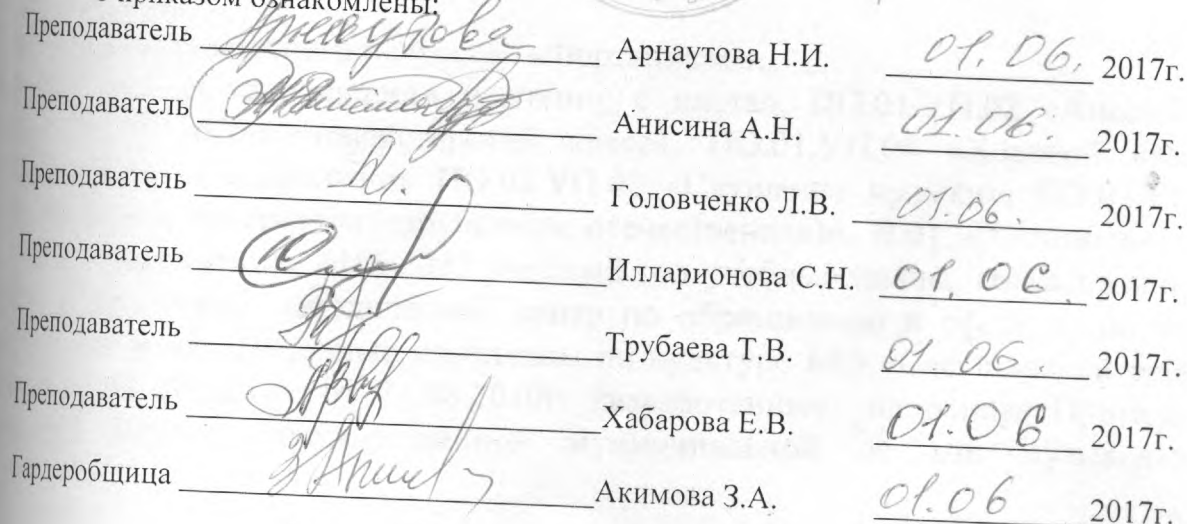 приказом ознакомлены:
Преподаватель Арнаутова Арнаутова Н.И. 01.06. 2017г.
Преподаватель Анисина А.Н. 01.06. 2017г.
Преподаватель Головченко Л.В. 01.06. 2017г.
Преподаватель Илларионова С.Н. 01.06. 2017г.
Преподаватель Трубаева Т.В. 01.06. 2017г.
Преподаватель Хабарова Е.В. 01.06 2017г.
Гардеробщица Акимова З.А. 01.06 2017г.